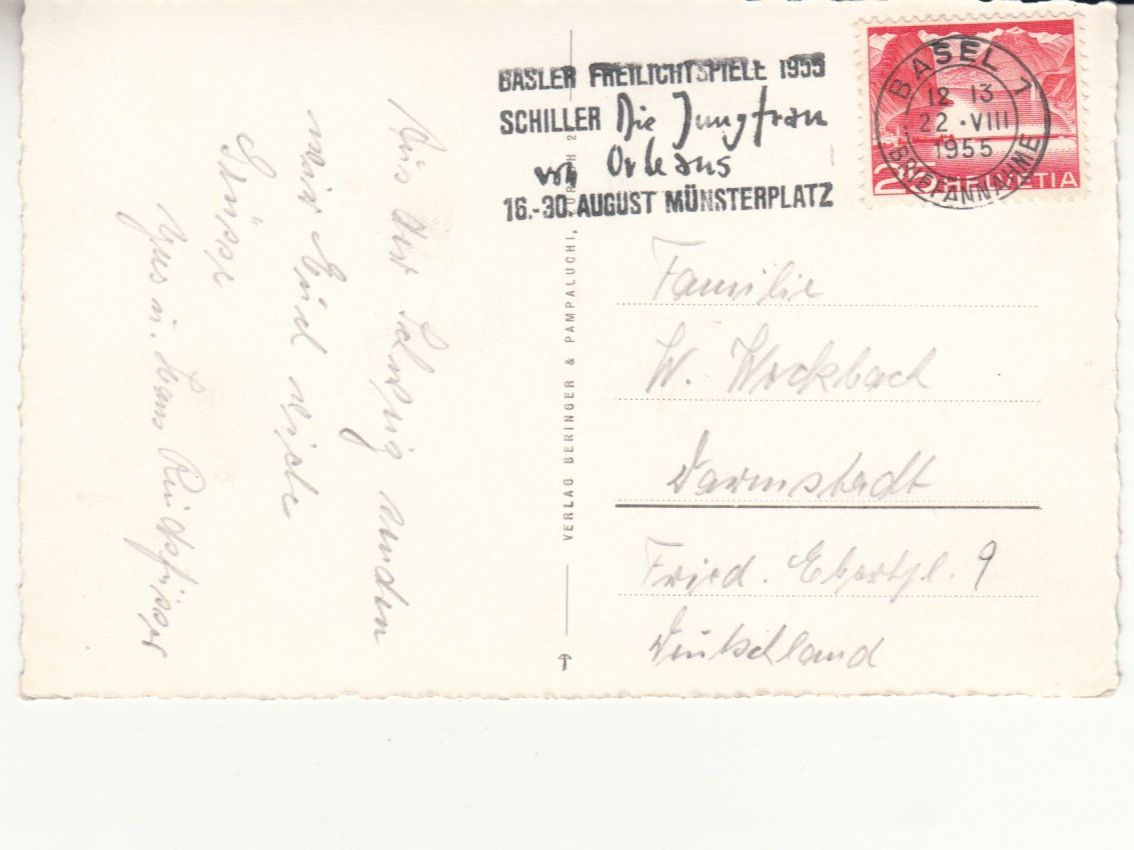 BASLER FREILICHTSPIELE 1955
SCHILLER Die Jungfrau
von Orleans
16.-30. AUGUST MÜNSTERPLATZ
BASEL 1
12 13
22.VIII
1955
BRIEFANNAHME
20 HELVETIA
Aus der Schweiz senden
wir Euch viele
Grüsse
Hans
VERLAG BERINGER & PAMPALUCHI, ZÜRICH 2
Familie
W. Wockbach
Darmstadt
Fried. Ebertpl. 9
Deutschland